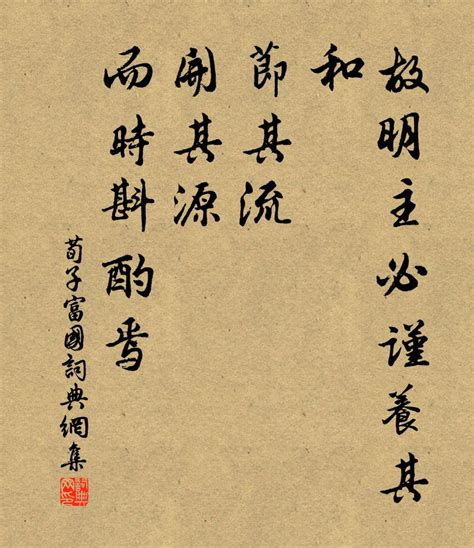 故明主必謹養其
和
節其流
開其源
而時斟酌焉
荀子富國詞典網集